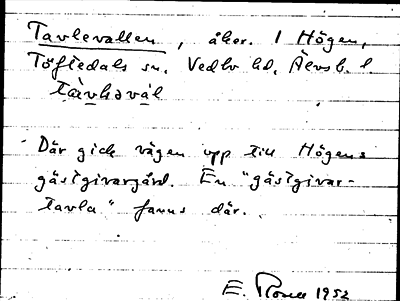 Tavlevallen, åker. I Högen,
Töftedals sn. Vedbo hd. Älvsb. l.
Där gick vägen upp till Högens
gästgivargård. En "gästgivar-
tavla" fanns där.
E. 1952